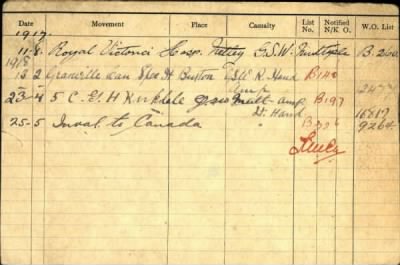 Date Movement Place Casualty List No. Notified N/K.O. W.O. List
1917
11-8. Royal Victoria Hosp. Netley G.S.W. Multiple B.260
1918
15 2 Granville Can Spec H Buxton GSW R. Hand B140
Amp
23-4 5 C.G.H Kirkdale gsw Mult- amp B197
Lt. Hand
25-5 Inval. to Canada " B 9264